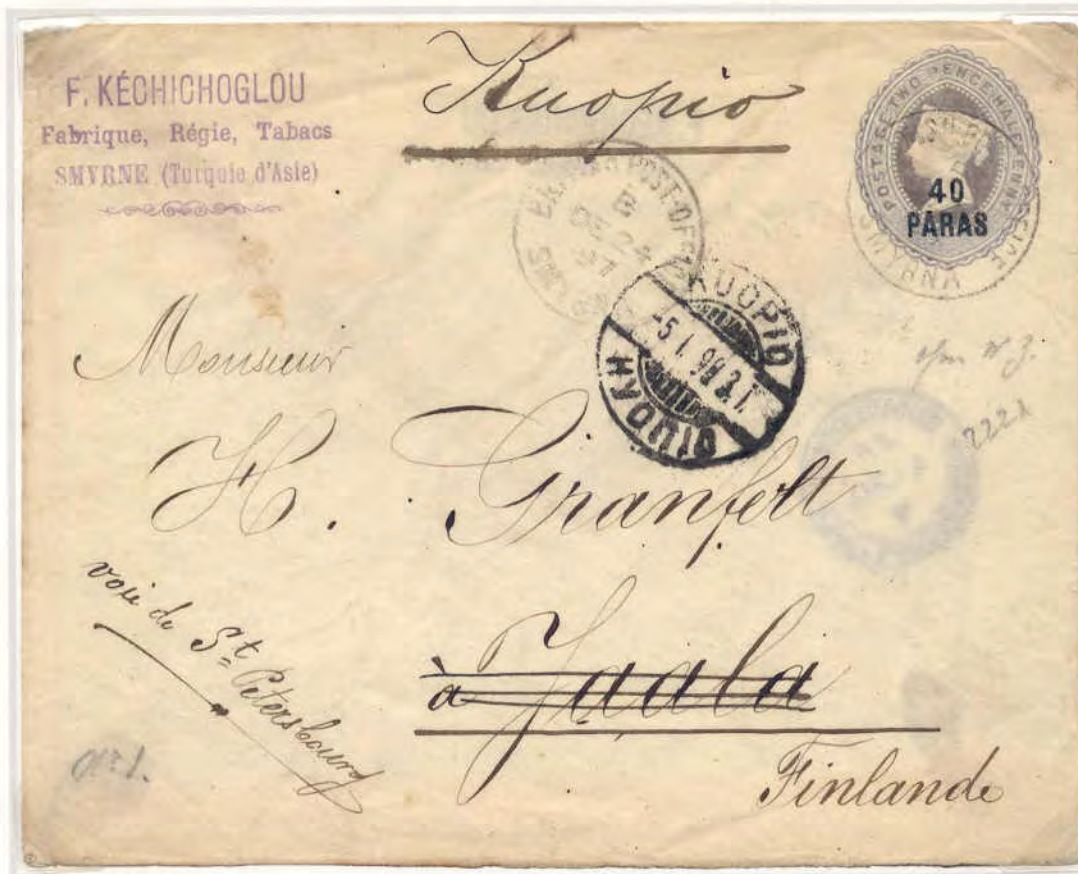 F. KÉCHICHOGLOU
Fabrique, Régie, Tabacs
SMYRNE (Turquie d'Asie)
Kuopio
POSTAGE TWO PENCE HALFPENNY
40
PARAS
BRITISH POST-OFFICE
DE 24
97
SMYRNA
KUOPIO
-5.1.98
KUOPIO
Monsieur
H. Granfelt
voie de St Petersbourg
à Jaala
Finlande
2221
No 1.